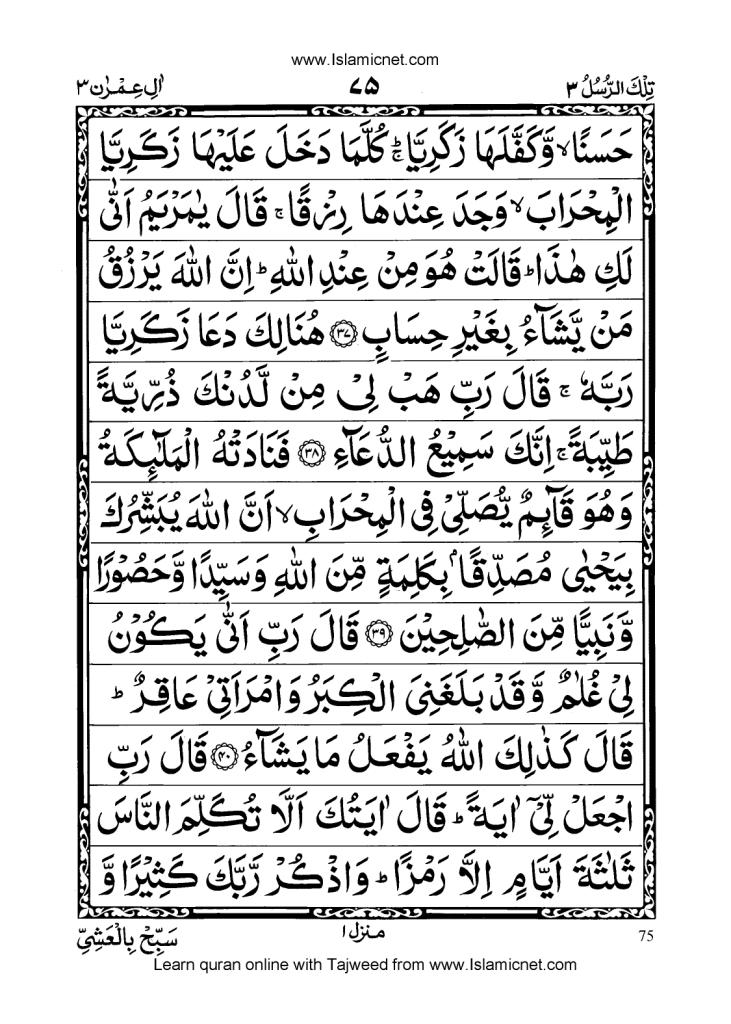 www.Islamicnet.com
تِلْكَ الرُّسُلُ ٣ ٧٥ اٰلِ عِمْرٰن ٣
حَسَنًا ۙ وَّكَفَّلَهَا زَكَرِيَّا ۚؕ كُلَّمَا دَخَلَ عَلَيْهَا زَكَرِيَّا
الْمِحْرَابَ ۙ وَجَدَ عِنْدَهَا رِزْقًا ۚ قَالَ يٰمَرْيَمُ اَنّٰى
لَكِ هٰذَا ؕ قَالَتْ هُوَ مِنْ عِنْدِ اللّٰهِ ؕ اِنَّ اللّٰهَ يَرْزُقُ
مَنْ يَّشَآءُ بِغَيْرِ حِسَابٍ ۝٣٧ هُنَالِكَ دَعَا زَكَرِيَّا
رَبَّهٗ ۚ قَالَ رَبِّ هَبْ لِىْ مِنْ لَّدُنْكَ ذُرِّيَّةً
طَيِّبَةً ۚ اِنَّكَ سَمِيْعُ الدُّعَآءِ ۝٣٨ فَنَادَتْهُ الْمَلٰٓئِكَةُ
وَهُوَ قَآئِمٌ يُّصَلِّىْ فِى الْمِحْرَابِ ۙ اَنَّ اللّٰهَ يُبَشِّرُكَ
بِيَحْيٰى مُصَدِّقًۢا بِكَلِمَةٍ مِّنَ اللّٰهِ وَسَيِّدًا وَّحَصُوْرًا
وَّنَبِيًّا مِّنَ الصّٰلِحِيْنَ ۝٣٩ قَالَ رَبِّ اَنّٰى يَكُوْنُ
لِىْ غُلٰمٌ وَّقَدْ بَلَغَنِىَ الْكِبَرُ وَامْرَاَتِىْ عَاقِرٌ ؕ
قَالَ كَذٰلِكَ اللّٰهُ يَفْعَلُ مَا يَشَآءُ ۝٤٠ قَالَ رَبِّ
اجْعَلْ لِّىْۤ اٰيَةً ؕ قَالَ اٰيَتُكَ اَلَّا تُكَلِّمَ النَّاسَ
ثَلٰثَةَ اَيَّامٍ اِلَّا رَمْزًا ؕ وَاذْكُرْ رَّبَّكَ كَثِيْرًا وَّ
75 منزل ١ سَبِّحْ بِالْعَشِىِّ
Learn quran online with Tajweed from www.Islamicnet.com